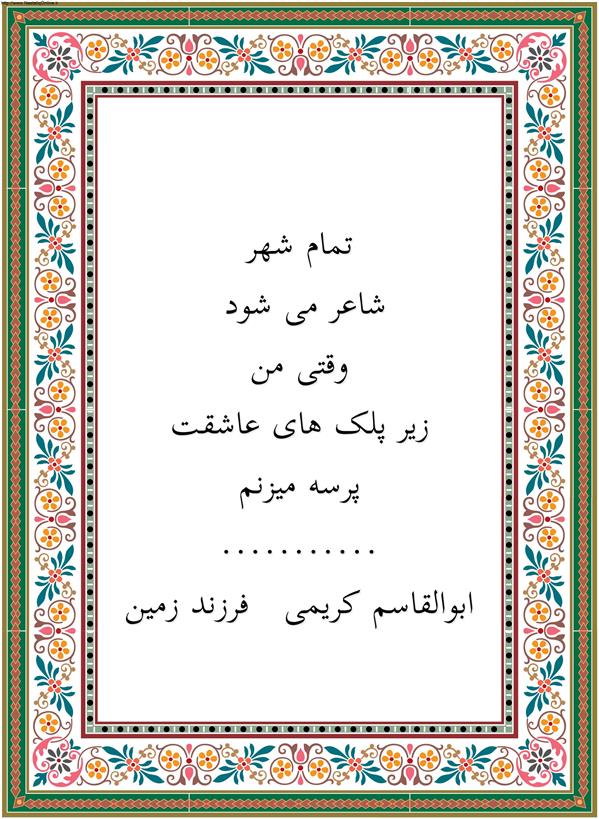 http://www.NastaliqOnline.ir
تمام شهر
شاعر می شود
وقتی من
زیر پلک های عاشقت
پرسه میزنم
...........
ابوالقاسم کریمی فرزند زمین